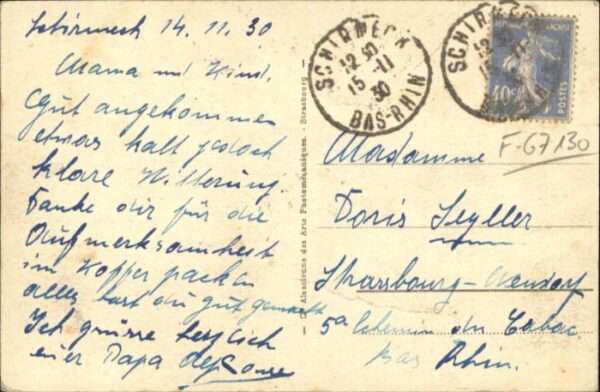 Schirmeck 14.11.30
Mama und Kind.
Gut angekommen
etwas kalt jedoch
klare Witterung.
Danke dir für die
Aufmerksamkeit
im Koffer packen
alles hast du gut gemacht
Ich grüsse herzlich
euer Papa
SCHIRMECK
12 30
15-11
30
BAS-RHIN
SCHIRMECK
40c
POSTES
F-67130
Madamme
Doris Seyller
Strasbourg-Neudorf
5a Chemin du
Bas Rhin.
Alsacienne des Arts Photomécaniques - Strasbourg